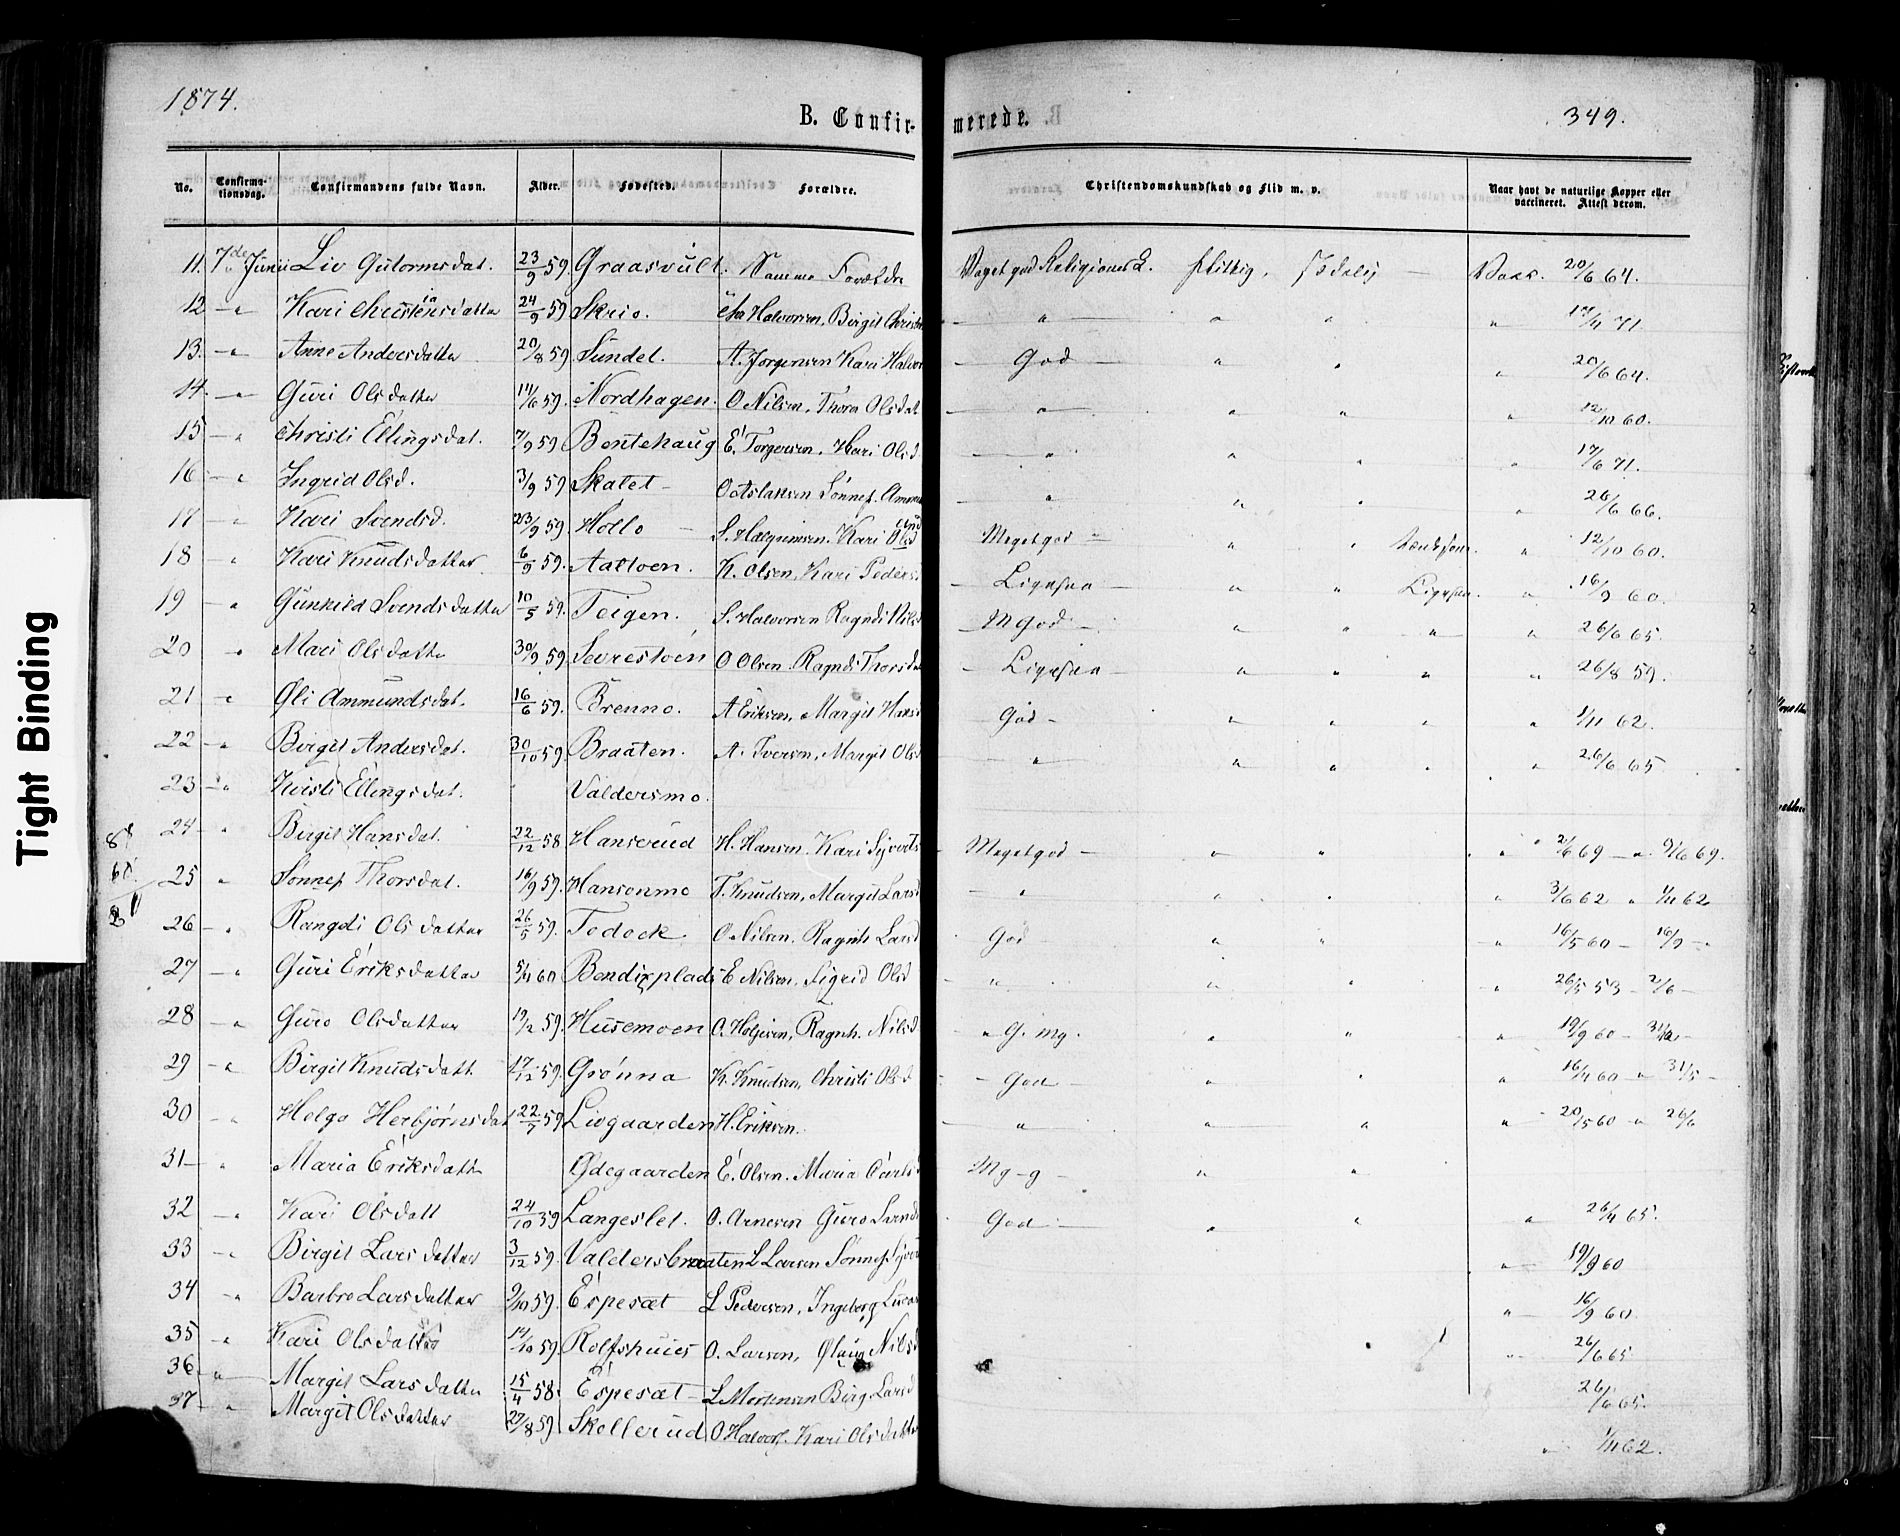 1874.
B. Confir- merede.
349.
No. Confirma-tionsdag. Confirmandens fulde Navn. Alder. Fødested. Forældre. Christendomskundskab og Flid m. v. Naar havt de naturlige Kopper eller vaccineret. Attest derom.
11. 7de Junii Liv Gutormsdat. 23/9 59. Graasvult. Samme Forældre Meget god Religions K. flittig, sædelig — Vacc. 20/6 64.
12 — " Kari Christensdatter 24/9 59 Skrio. Chr Halvorsen, Birgit Christ " " " " 17/4 71.
13. — " Anne Andersdatter 20/8 59 Sundel. A. Jorgensen Kari Halvor — God — " " " 20/6 64.
14. — " Guri Olsdatter 14/6 59. Nordhagen. O Nilsen, Thora Olsdat " " " " 12/10 60.
15 — " Christi Ellingsdat. 7/9 59 Bentehaug E. Torgersen. Kari Olsd " " " " 17/6 71.
16 — " Ingrid Olsd. 3/9 59 Skalet — Sønnef. " " " " 26/6 66.
17 " Kari Svendsd. 23/9 59. Hollo — Kari Olsd Meget god — " " " 12/10 60.
18 " Kari Knudsdatter. 6/9 59. Aaltoen. K. Olsen, Kari Peders — Ligesaa — " " Ligesaa. " 16/9 60.
19 — " Gunhild Svendsdatter 10/5 59. Teigen. S. Halvorsen Ragndi Nils — M God — " " " " 26/6 65.
20 " Mari Olsdatter 30/9 59. Sevrestoen O Olsen. Ragndi Thorsda — Ligesaa — " " " " 26/8 59.
21 — " Oli Ammundsdat. 16/6 59. Brenno. A Eriksen, Margit Hans God — " " " " 1/11 62.
22 — " Birgit Andersdat. 30/10 59. Braaten. A. Iversen, Margit Olsd " " " " " 26/6 65
23 — " Kristi Ellingsdat. Valdersmo.
24 — " Birgit Hansdat. 22/12 58 Hanserud H. Hansen. Kari Syverts Meget god — " " " 2/6 69 — " 9/6 69.
25 " Sønnef Thorsdat. 16/9 59. Hansenmo T. Knudsen, Margit Larsd — " " " " 3/6 62 " 1/11 62
26 — " Rangdi Olsdatter 26/5 59. Todock O Nilsen. Ragnh Larsd God " " " 16/5 60 — 16/9 — "
27 — " Guri Eriksdatter 5/4 60 Bendixplads E Nilsen, Sigrid Olsd " " " " 26/5 53 — 2/6 —
28 — " Guro Olsdatter 19/2 59. Husemoen O. Holjesen, Ragnh. Nilsd " G. mg. " " " 19/9 60 —
29 — " Birgit Knudsdatt 17/12 59. Grønna K. Knudsen, Christi Olsd — God — " " " 16/4 60 — " 31/5 —
30 " Helga Herbjørnsdat 22/7 59 Livgaarden H. Eriksen. " " " " 20/5 60 — " 26/6
31 — " Maria Eriksdatt Ødegaarden E. Olsen. Maria Carlsd Mg — g " "
32 — " Kari Olsdatt 24/10 59 Langeslet. O. Arnesen Guro Svend God — " " " 26/4 65.
33 — " Birgit Larsdatter 3/12 59. Valdersbraaten L Larsen Sønnef Syver " 19/9 60
34 — " Barbro Larsdatter 9/10 59. Espesæt L Pedersen, Ingeborg " 16/9 60.
35 " Kari Olsdatter 14/10 59. Rolfshuies O. Larsen, Olaug Nilsd " 26/6 65.
36 " Margit Larsdatter 15/4 58. Espesæt — L Mortensen Birg. Larsd 26/6 65.
37 — " Margit Olsdatter 27/8 59 Skollerud O Halvors. Kari Olsdatter " 1/11 62.
Tight Binding